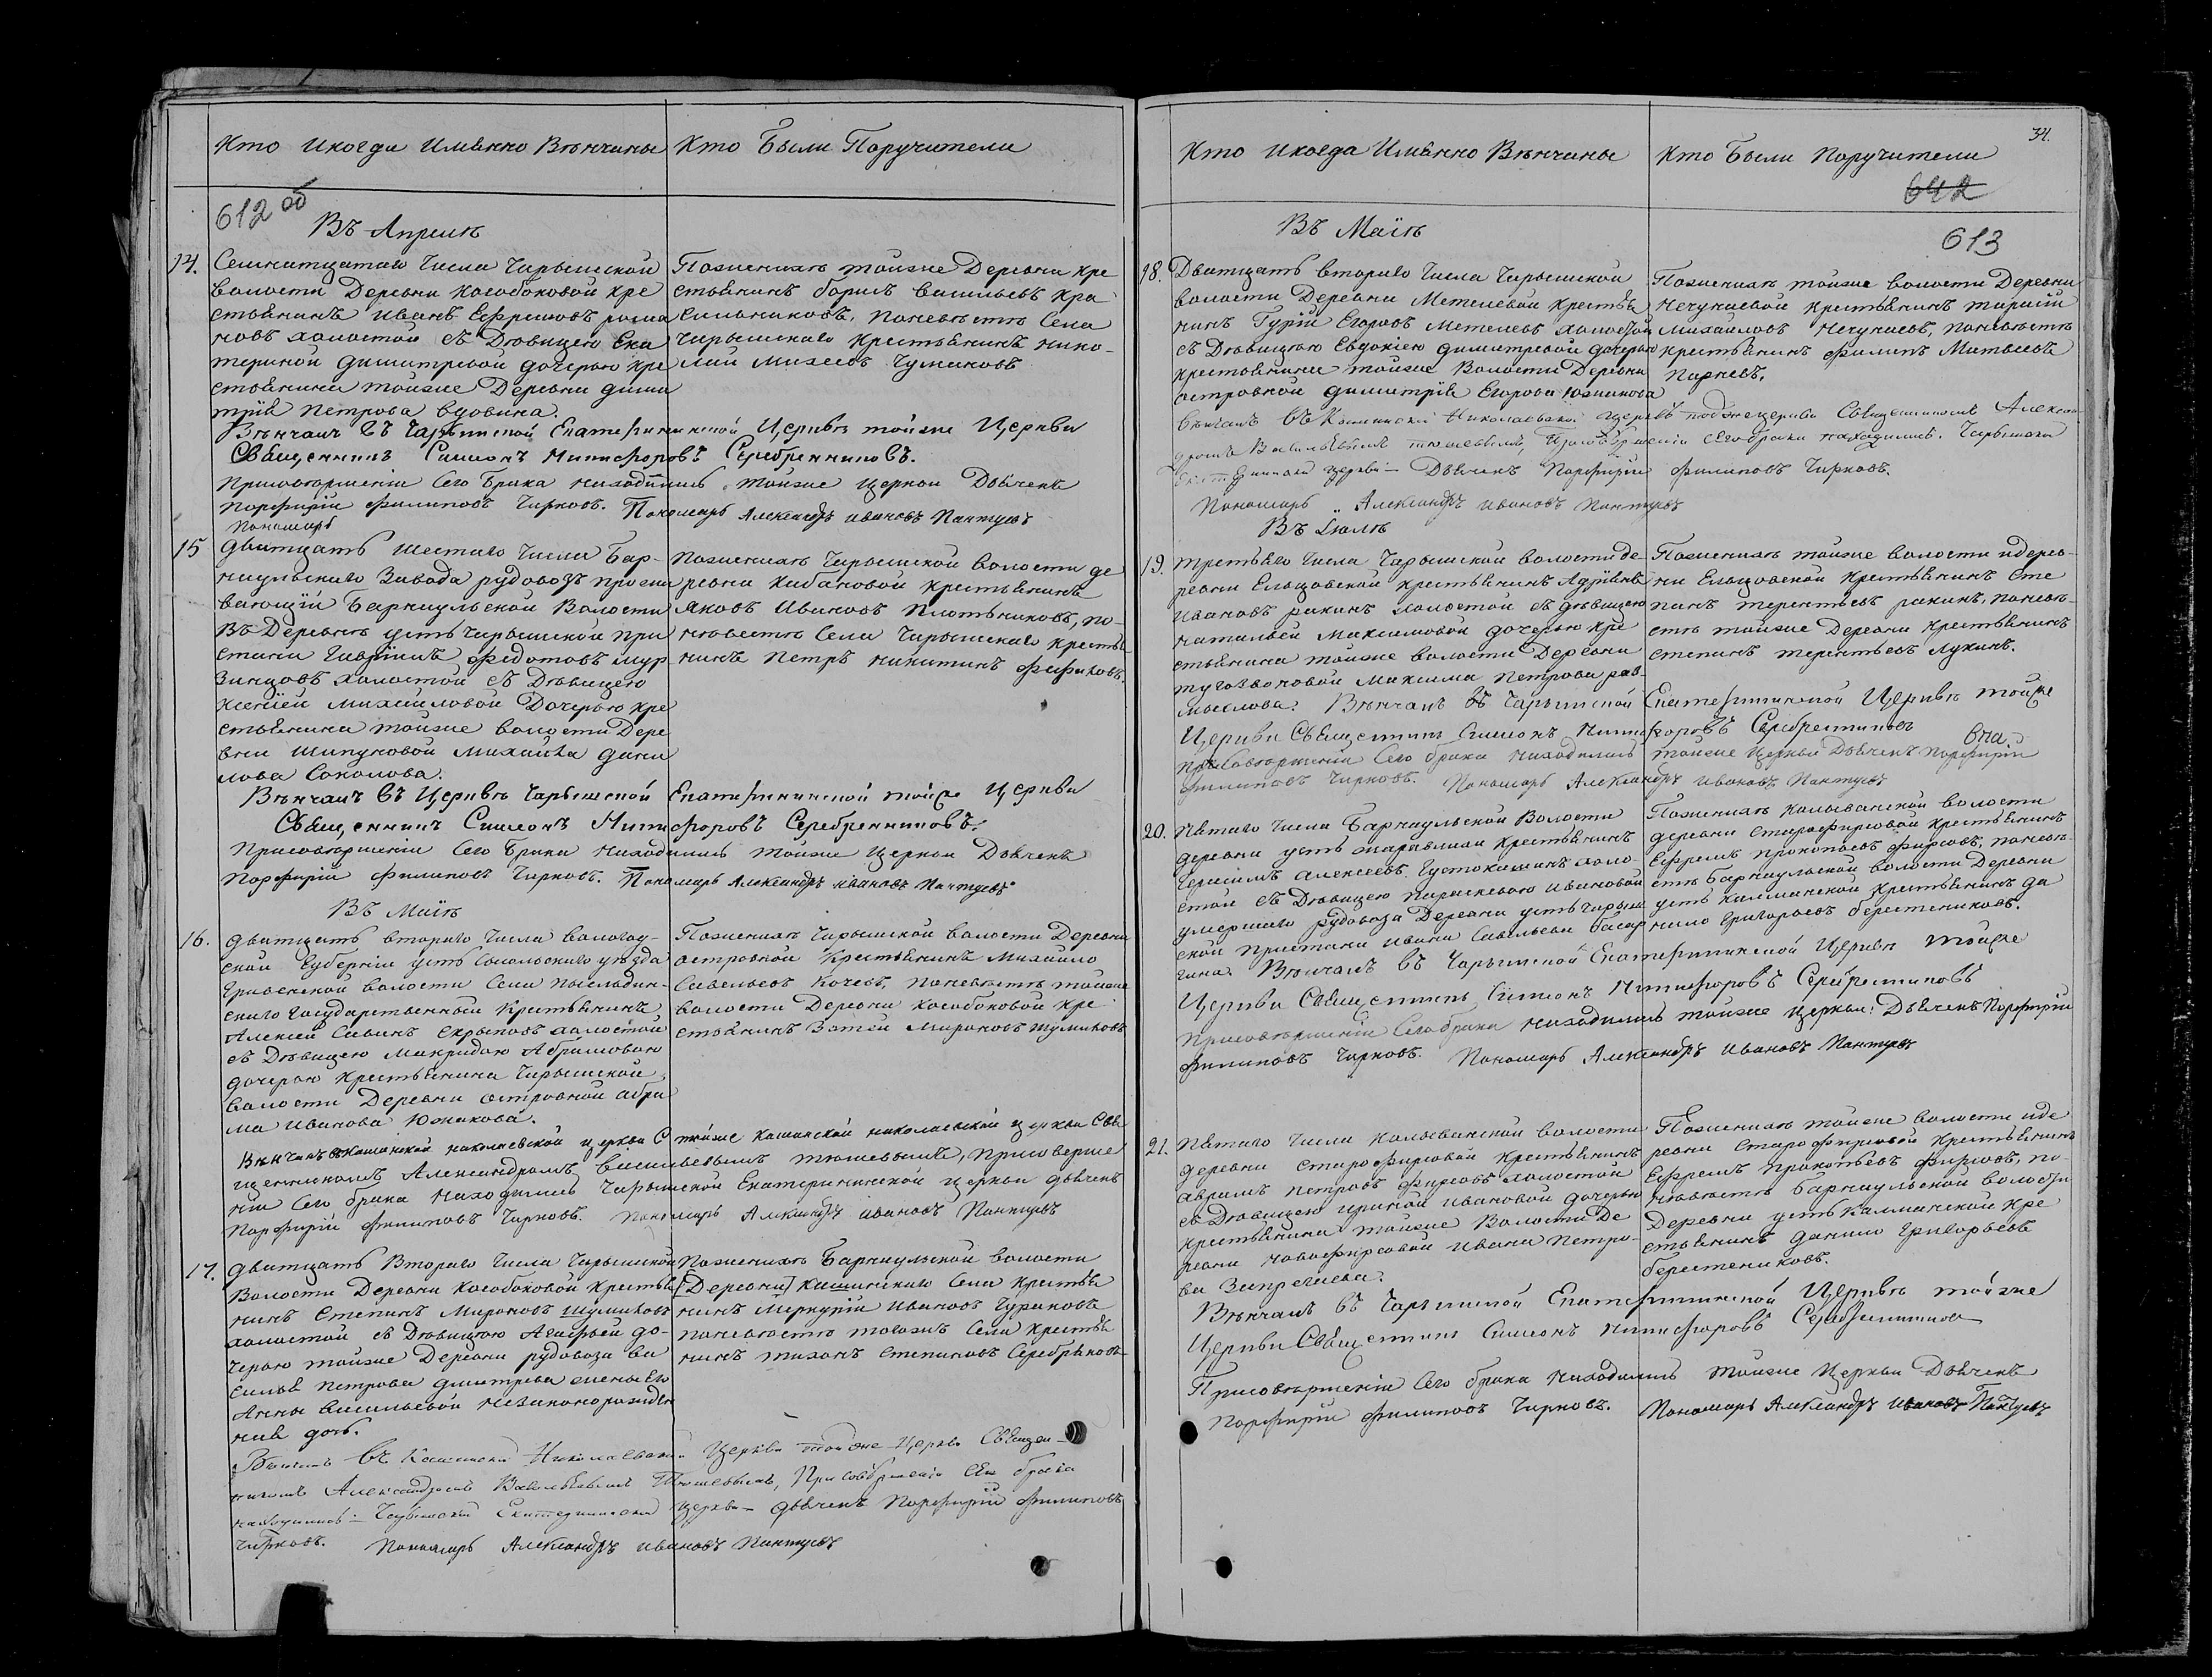 Кто и когда Имянно Венчаны
Кто Были Поручители
612 об
Въ Апреле
14.
Семнатцатаго Числа Чарышской
волости Деревни Кособоковой кре
стьянинъ Иванъ Ефремовъ рома
новъ холостой съ Девицею Ека
териной димитревой дочерью кре
стьянина тойже Деревни дими
трия Петрова вдовина.
Поженихе тойже Деревни кре
стьянинъ борисъ васильевъ кра
сильниковъ, поневесте Села
Чарышскаго крестьянинъ нико-
лай михеевъ Чумаковъ
Венчалъ въ Чарышской Екатерининской Церкве тойже Церкви
Священникъ Симеонъ Никифоровъ Серебренниковъ.
Присовершении Сего Брака находились тойже Церкви Дьячекъ
Порфирий филиповъ Чирковъ. Пономарь Александръ ивановъ Пантуевъ
Пономарь
15
Дватцать шестаго Числа Бар-
наульскаго Завода рудовозъ прожи
вающий Барнаульской Волости
Въ Деревне усть Чарышской при
стани Гавриилъ федотовъ мур
зинцовъ холостой съ Девицею
Ксенией михайловой Дочерью кре
стьянина тойже волости Дере
вни Шипуновой Михаила дани
лова Соколова.
Поженихе Чарышской волости де
ревни Кабановой крестьянинъ
Яковъ Ивановъ Плотниковъ, по-
невесте Села Чарышскаго кресть
нинъ Петръ никитинъ фефиловъ.
Венчалъ въ Церкве Чарышской Екатерининской тойже Церкви
Священникъ Симеонъ Никифоровъ Серебренниковъ.
Присовершении Сего Брака находились тойже Церкви Дьячекъ
Порфирий филиповъ Чирковъ. Пономарь Александръ ивановъ Пантуевъ
Въ Маие
16.
дватцать втораго Числа вологод-
ской Губернии усть Сысольскаго уезда
волости Села
скаго государственный Крестьянинъ
Алексей Савинъ скрыповъ холостой
съ Девицею Макридою Абрамовою
дочерью крестьянина Чарышской
волости Деревни островной абра
ма иванова Южакова.
Поженихе Чарышской волости Деревни
островной Крестьянинъ Михайло
Савельевъ Кочевъ, поневесте тойже
волости Деревни Кособоковой кре
стьянинъ Миро­новъ Шумиловъ
Венчанъ въ кашинской николаевской церкви тойже кашинской николаевской церкви Свя
щенникомъ Александромъ васильевымъ тюшевымъ, присоверше
нии Сего брака находились Чарышской Екатерининской церкви дьячекъ
Порфирий филиповъ Чирковъ. Пономарь Александръ ивановъ Пантуевъ
17.
дватцать Втораго Числа Чарышской
Волости Деревни Кособоковой крестья
нинъ Степанъ Мироновъ Шумиловъ
холостой съ Девицею Агафьей до-
черью тойже Деревни рудовоза ва
силья Петрова дмитрева жены его
Анны васильевой незаконорожден
ная дочь.
Поженихе Барнаульской волости
[Деревни] Кашинского Села крестья
нинъ Меркурий ивановъ Чураковъ
поневесте тогожъ Села крестья
нинъ тихонъ степановъ Серебряковъ
Венчанъ въ Кашинской Николаевской Церкви тойже Церкви Священ-
никомъ Александромъ Васильевымъ Тюшевымъ, При совершении Сего брака
находились Чарышской Екатерининской церкви дьячекъ Порфирий филиповъ
Чирковъ. Пономарь Александръ ивановъ Пантуевъ
Кто и когда Имянно Венчаны
Кто Были Поручители
34.
642
613
Въ Маие
18.
Дватцать втораго Числа Чарышской
волости Деревни Метелевой крестья
нинъ Гурий Егоровъ Метелевъ холостой
съ Девицею Евдокиею димитревой дочерью
крестьянина тойже Волости Деревни
островной димитрия Егорова Южакова
Поженихе тойже волости Деревни
Нечунаевой крестьянинъ тарасий
михайловъ Нечунаевъ, поневесте
крестьянинъ филипъ Матвеевъ
Парневъ.
Венчанъ въ Кашинской Николаевской церкве тойже церкви Священникомъ Алексан
дромъ Васильевымъ тюшевымъ, Присовершении сего брака находились. Чарышской
Екатерининской церкви Дьячекъ Порфирий филиповъ Чирковъ.
Пономарь Александръ ивановъ Пантуевъ
Въ Іюле
19.
третьяго Числа Чарышской волости де-
ревни Ельцовской крестьянинъ Адриянъ
Ивановъ ракинъ холостой съ девицею
натальей Максимовой дочерью кре
стьянина тойже волости Деревни
тугозвоновой Максима Петрова раз-
мыслова. Венчалъ въ Чарышской Екатерининской Церкве тойже
Церкви Священникъ Симеонъ Никифоровъ Серебренниковъ
Присовершении Сего брака находились тойже Церкви Дьячекъ Порфирий
филиповъ Чирковъ. Пономарь Александръ ивановъ Пантуевъ
Поженихе тойже волости идерев-
ни Ельцовской крестьянинъ Сте
панъ терентьевъ ракинъ, поневе-
сте тойже Деревни крестьянинъ
степанъ терентьевъ Лукинъ.
20.
Пятаго Числа Барнаульской Волости
деревни усть журавлихи крестьянинъ
Герасимъ Алексеевъ Густокашинъ холо
стой съ Девицею Параскевою ивановой
умершаго рудовоза Деревни усть Чарыш
ской пристани ивана Савельева басар
гина. Венчалъ въ Чарышской Екатерининской Церкве тойже
Церкви Священникъ Симеонъ Никифоровъ Серебренниковъ
Присовершении Сего брака находились тойже церкви: Дьячекъ Порфирий
филиповъ Чирковъ. Пономарь Александръ Ивановъ Пантуевъ
Поженихе Колыванской волости
деревни старофирсовой крестьянинъ
Ефремъ прокопьевъ фирсовъ, поневе
сте Барнаульской волости Деревни
усть калманской крестьянинъ да
нило григорьевъ берестениковъ.
21.
Пятаго Числа Колыванской волости
деревни Старофирсовой крестьянинъ
аврамъ петровъ фирсовъ холостой
съ Девицею ириной ивановой дочерью
крестьянина тойже Волости Де
ревни новофирсовой ивана Петро-
ва Запрегаева.
Поженихе тойже волости иде
ревни Старофирсовой крестьянинъ
Ефремъ прокопьевъ фирсовъ, по-
невесте Барнаульской волости
Деревни усть Калманской кре
стьянинъ данило Григорьевъ
берестениковъ.
Венчалъ въ Чарышской Екатерининской Церкве тойже
Церкви Священникъ Симеонъ Никифоровъ Серебренниковъ
Присовершении Сего брака находились тойже Церкви Дьячекъ
Порфирий филиповъ Чирковъ. Пономарь Александръ Ивановъ Пантуевъ